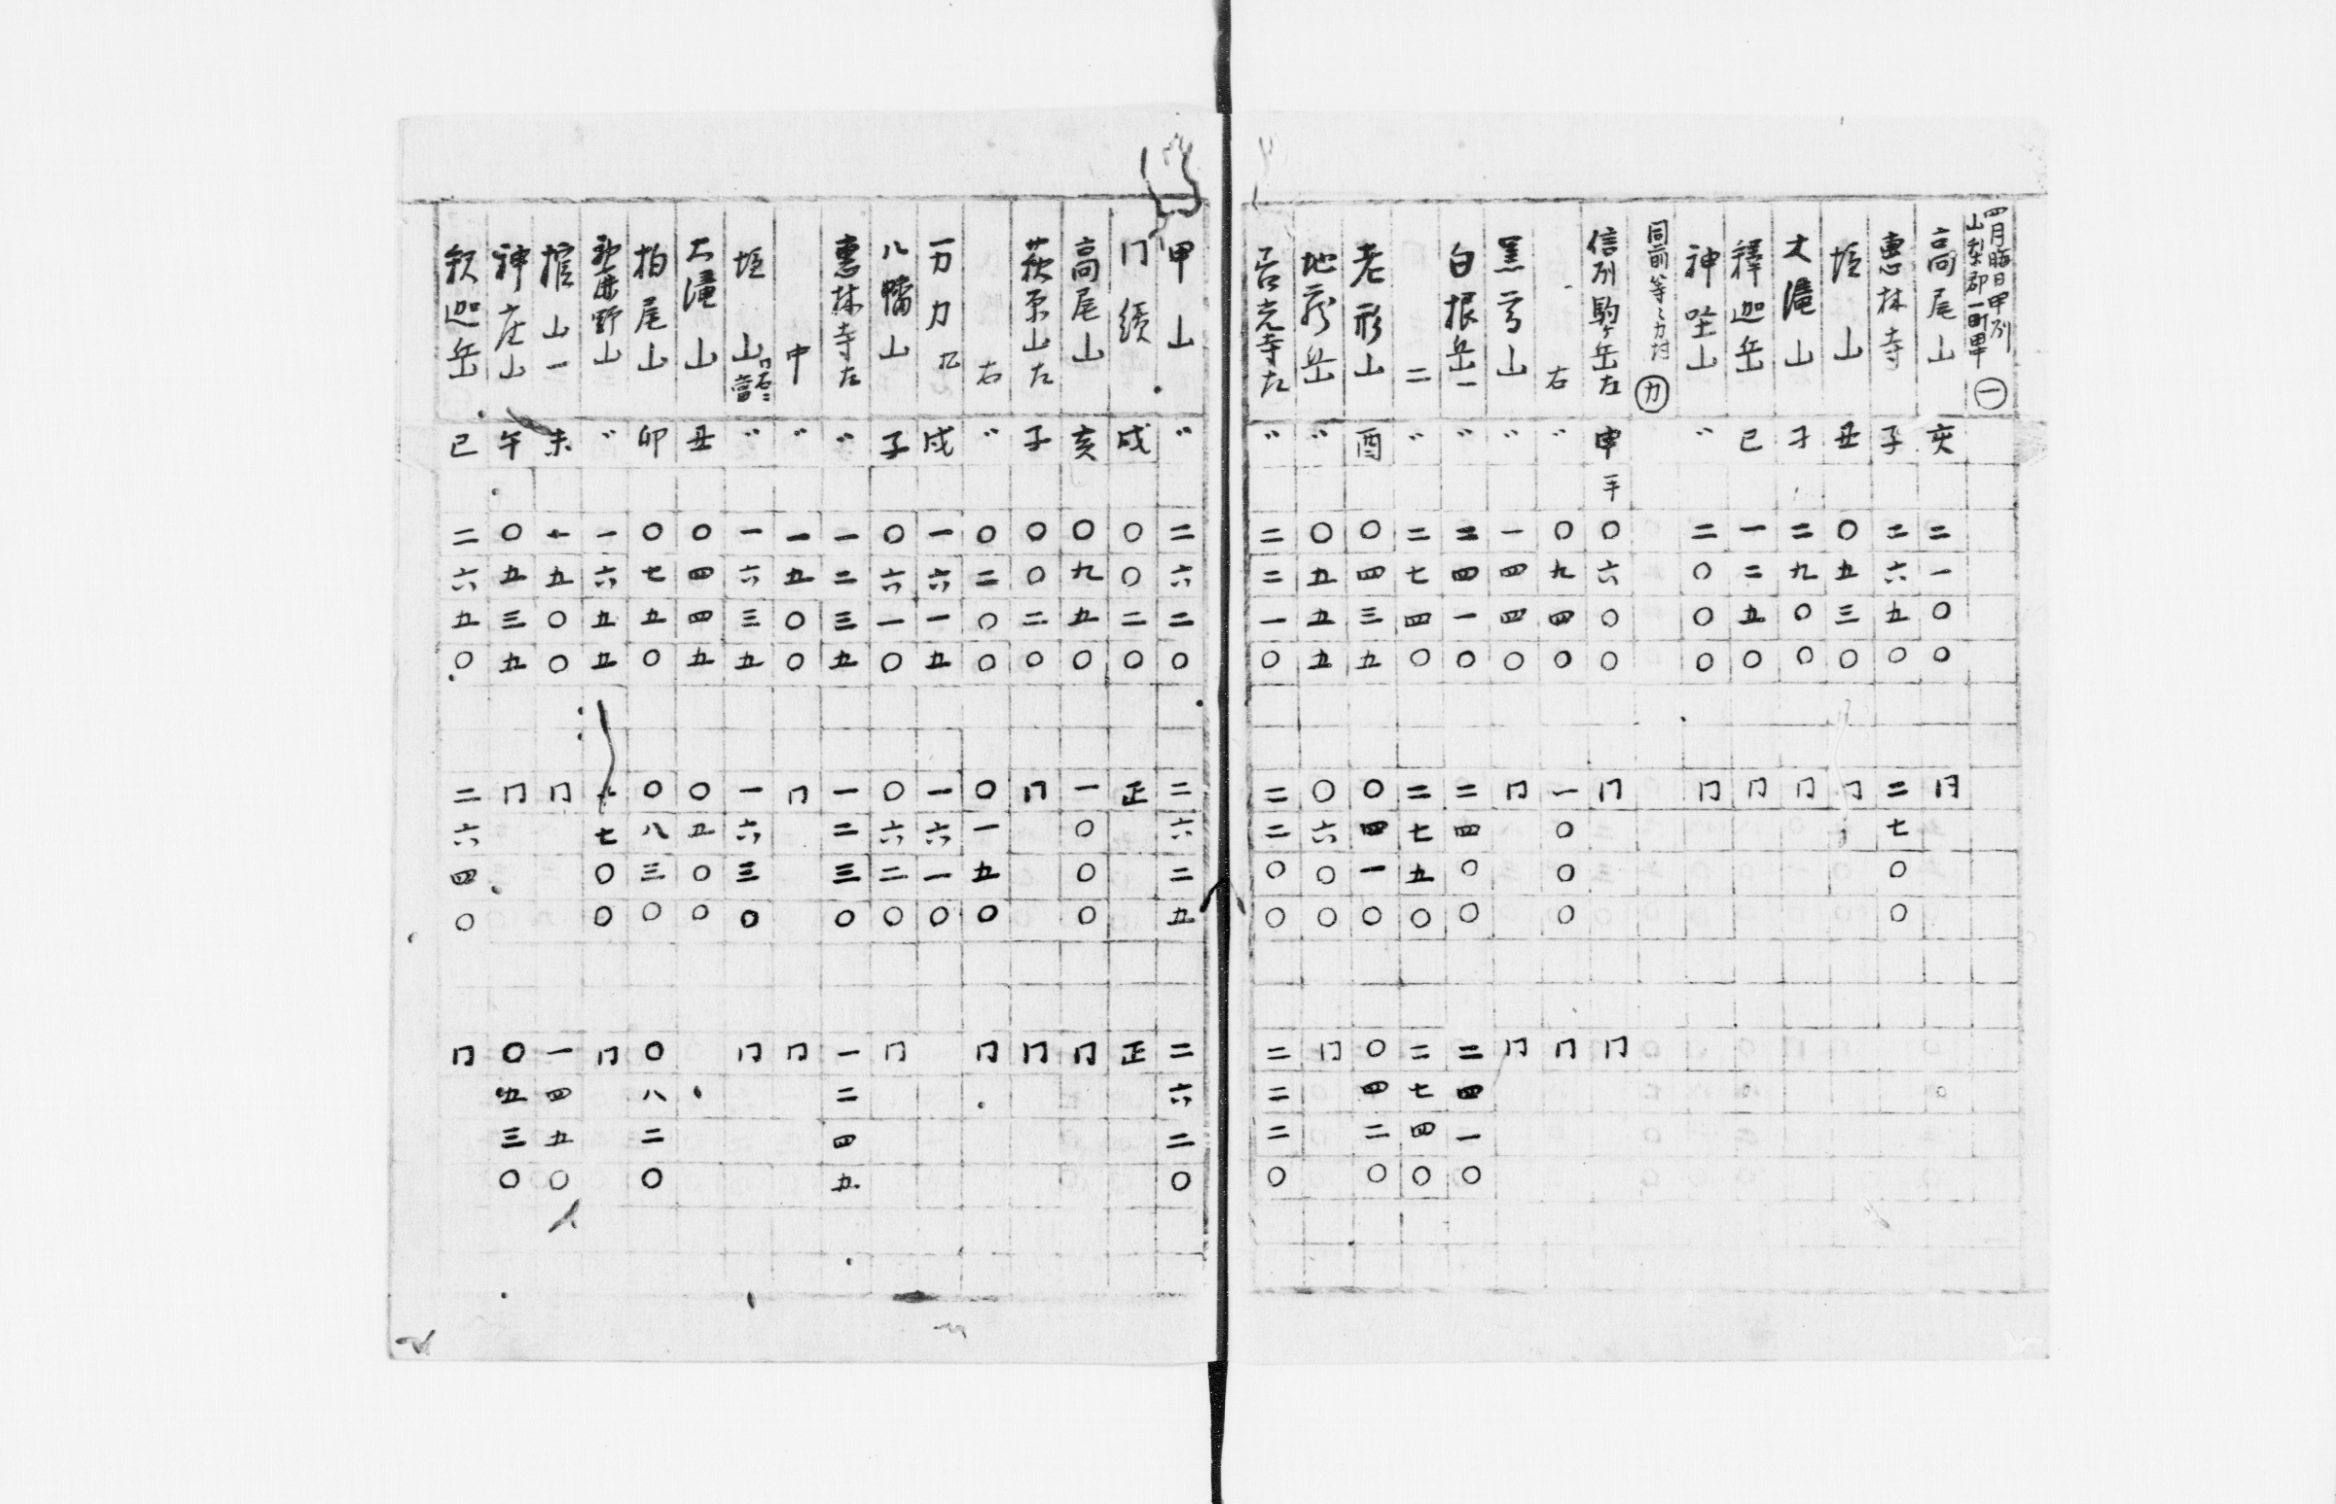 四月晦日甲刕
山梨郡一町甲 ㊀
高尾山 亥 二一〇〇 冂
惠林寺 子 二六五〇 二七〇〇
塩山 丑 〇五三〇 冂
大滝山 才 二九〇〇 冂
釋迦岳 巳 一二五〇 冂
神坐山 〃 二〇〇〇 冂
同前等々力村 カ
信刕駒ヶ岳左 申 半 〇六〇〇 冂 冂
右 〃 〇九四〇 一〇〇〇 冂
黒 山 〃 一四四〇 冂 冂
白根岳一 〃 二四一〇 二四〇〇 二四一〇
二 〃 二七四〇 二七五〇 二七四〇
老形山 酉 〇四三五 〇四一〇 〇四二〇
地蔵岳 〃 〇五五五 〇六〇〇 冂
善光寺左 〃 二二一〇 二二〇〇 二二二〇
甲山 〃 二六二〇 二六二五 二六二〇
冂績 戌 〇〇二〇 正 正
高尾山 亥 〇九五〇 一〇〇〇 冂
萩原山左 子 〇〇二〇 冂 冂
右 〃 〇二〇〇 〇一五〇 冂
一万力 戌 一六一五 一六一〇
八幡山 子 〇六一〇 〇六二〇 冂
惠林寺左 〃 一二三五 一二三〇 一二四五
中 〃 一五〇〇 冂 冂
塩山 〃 一六三五 一六三〇 冂
大滝山 丑 〇四四五 〇五〇〇
柏尾山 卯 〇七五〇 〇八三〇 〇八二〇
野山 〃 一六五五 七〇〇 冂
山一 未 一五〇〇 冂 一四五〇
神座山 午 〇五三五 冂 〇五三〇
釈迦岳 巳 二六五〇 二六四〇 冂